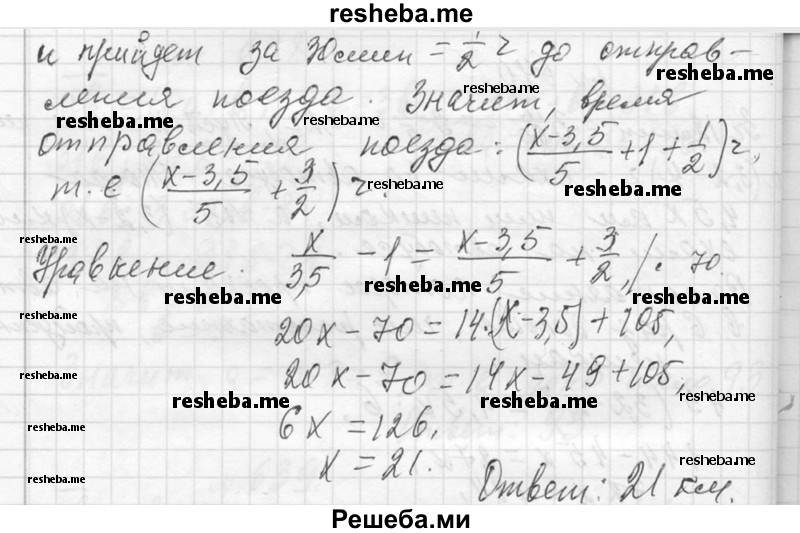 resheba.me
и прийдет за 30 мин = 1/2 ч до отправ-
resheba.me
resheba.me
ления поезда. Значит, время
resheba.me resheba.me
отправления поезда: ((x-3,5)/5 + 1 + 1/2) ч,
т.е ((x-3,5)/5 + 3/2) ч.
resheba.me resheba.me
resheba.me
Уравнение. x/3,5 - 1 = (x-3,5)/5 + 3/2, /· 70.
resheba.me resheba.me resheba.me
20x - 70 = 14·(x-3,5) + 105,
resheba.me
20x - 70 = 14x - 49 + 105,
resheba.me
resheba.me resheba.me resheba.me
6x = 126,
resheba.me
x = 21.
resheba.me
Ответ: 21 км.
resheba.me
Решеба.ми